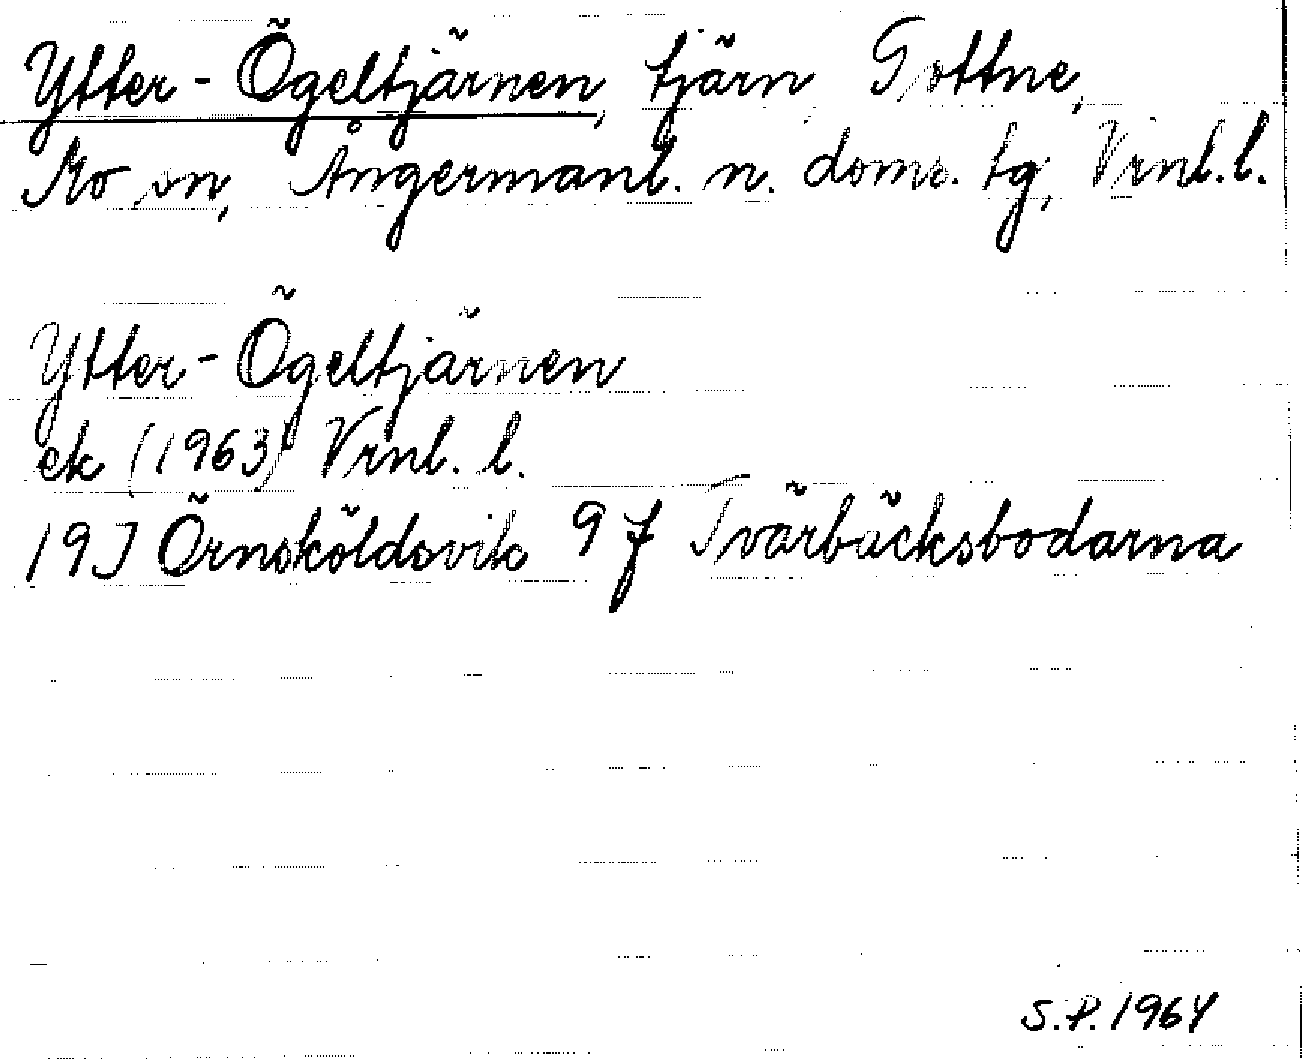 Ytter-Ögeltjärnen, tjärn, Gottne,
Mo sn, Ångermanl. n. doms. tg, Vrnl.l.
Ytter-Ögeltjärnen
ek (1963) Vrnl. l.
19J Örnsköldsvik 9 f Tvärbäcksbodarna
S.P. 1964